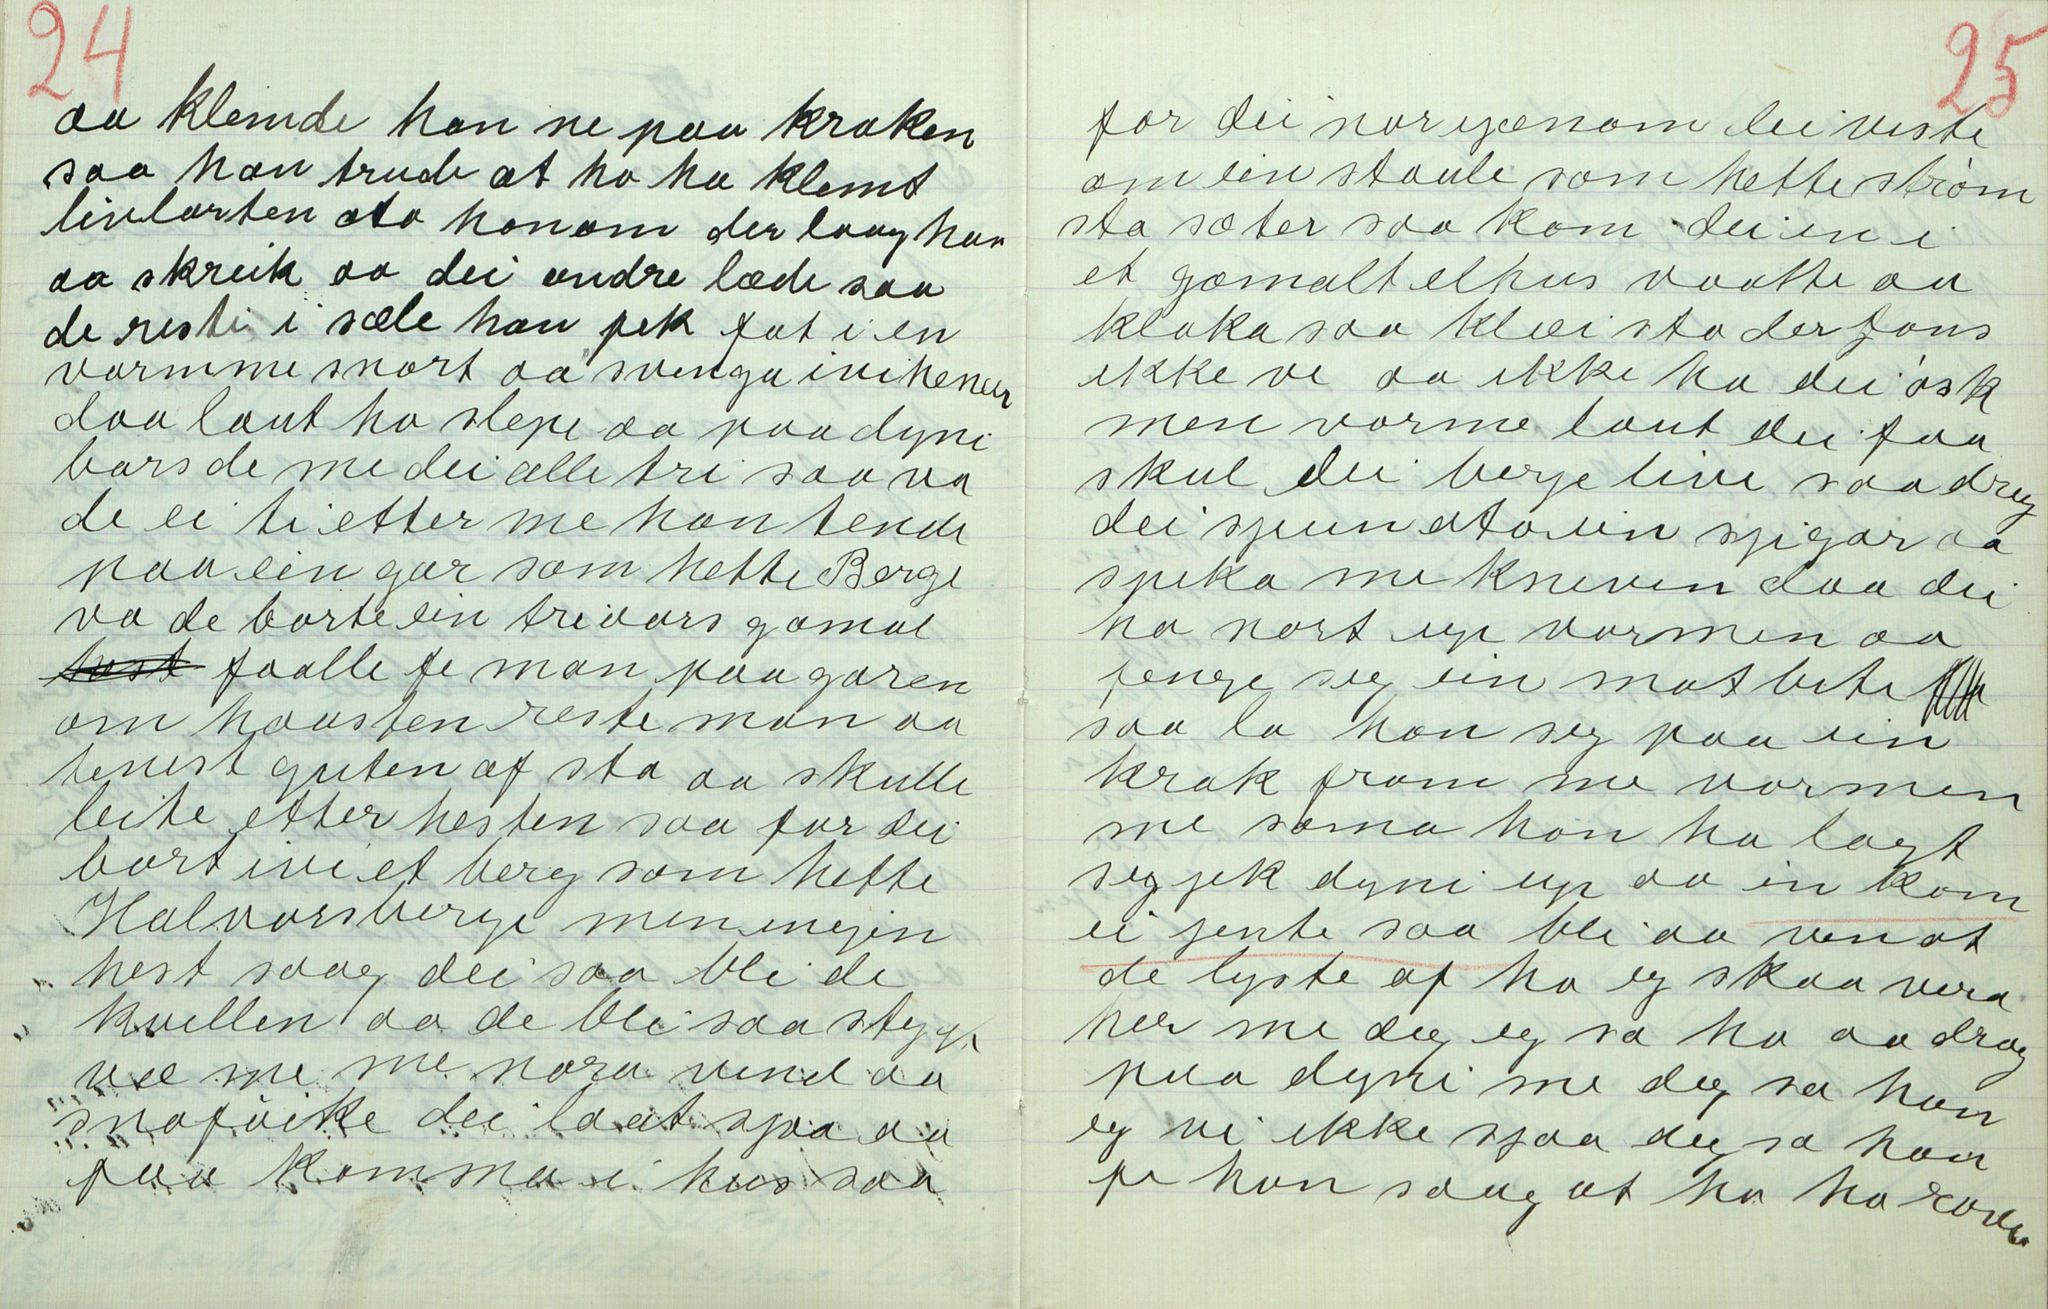 24
aa klemde han ne paa kraken
saa han trude at ho ha klemt
livlorten ato honom der laag han
aa skreik aa dei andre læde saa
de riste i sæle han fek fat i en
varmme snart aa svenga ivi heneer
daa laut ho slepe aa paa dyni
bars de me dei alle tri saa va
de ei ti etter me han tende
paa ein gar som hette Berge
va de borte ein trivars gamal
faalle fe man paa garen
om haausten reste man aa
tenest guten af sta aa skulle
leite etter hesten saa for dei
bort ivi et berg som hette
Halvorsberge men ingjen
hest saag dei saa blei de
kvellen aa de blei saa stygt
vee me me nora vind aa
snofoike dei laat sjaa aa
faa komma i hus saa
25
for dei norigjenom dei viste
om ein staule som hette strøm
sta sæter saa kom dei in i
et gamalt elhus vaatte aa
kloka saa klæi sto der fans
ikke ve aa ikke ha dei øsk
men varme laut dei faa
skul dei berge live saa dreg
dei spun ato ein spigar aa
spika me kneven daa dei
ha nort up varmen aa
fenge seg ein mat bete
saa la han seg paa ein
krak fram me varmen
me soma han ha lagt
seg jek dyni up aa in kom
ei jente saa bli aa ven at
de lyste af ho eg skaa vera
her me deg eg sa ho aa drog
paa dyni me deg sa han
eg vi ikke sjaa deg sa han
fe han saag at ho ha rove